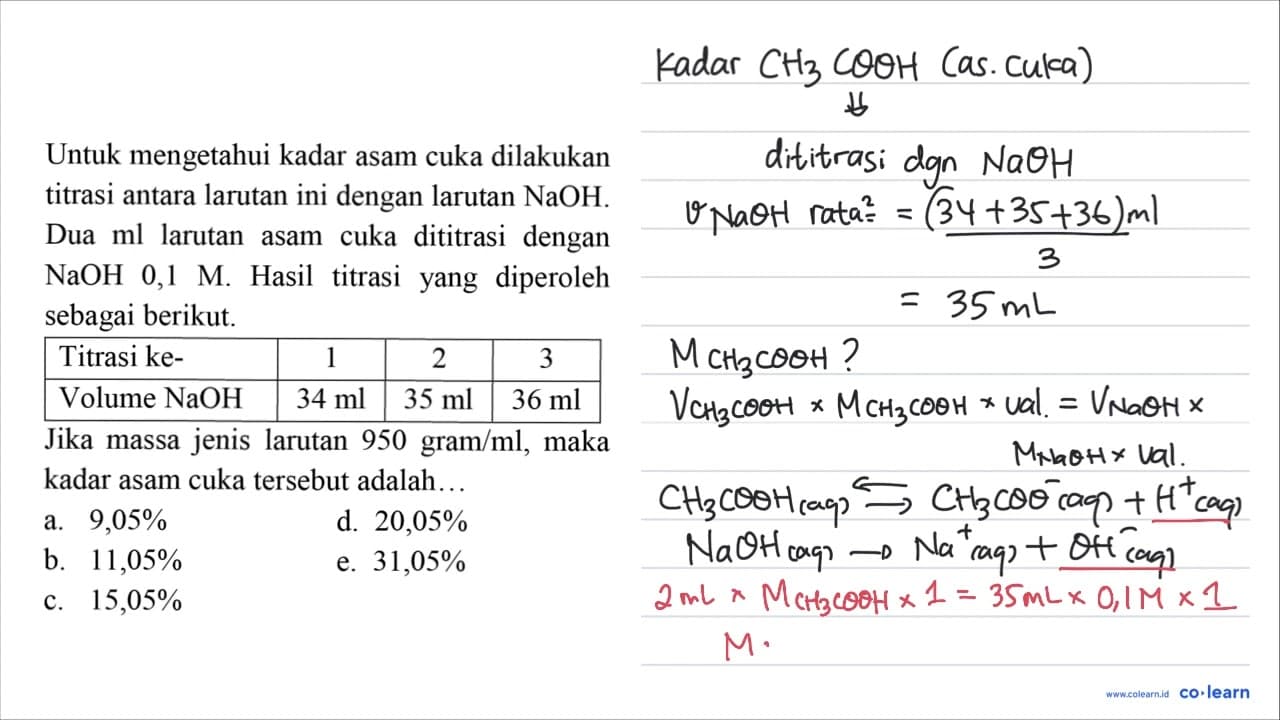 Untuk mengetahui kadar asam cuka dilakukan
titrasi antara larutan ini dengan larutan NaOH.
Dua ml larutan asam cuka dititrasi dengan
NaOH 0,1 M. Hasil titrasi yang diperoleh
sebagai berikut.
Titrasi ke- 1 2 3
Volume NaOH 34 ml 35 ml 36 ml
Jika massa jenis larutan 950 gram/ml, maka
kadar asam cuka tersebut adalah…
a. 9,05% d. 20,05%
b. 11,05% e. 31,05%
c. 15,05%
Kadar CH3 COOH (as. cuka)
⇓
dititrasi dgn NaOH
V NaOH rata² = (34+35+36)ml
3
= 35 mL
M CH3COOH ?
VCH3COOH × MCH3COOH × val. = VNaOH ×
MNaOH × val.
CH3COOH(aq) ⇌ CH3COO⁻(aq) + H⁺(aq)
NaOH(aq) → Na⁺(aq) + OH⁻(aq)
2 mL × MCH3COOH × 1 = 35 mL × 0,1 M × 1
M.
www.colearn.id co·learn